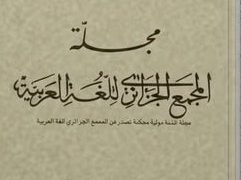 مجلة
المجمع الجزائري للغة العربية
مجلة لغوية دولية محكمة تصدر عن المجمع الجزائري للغة العربية